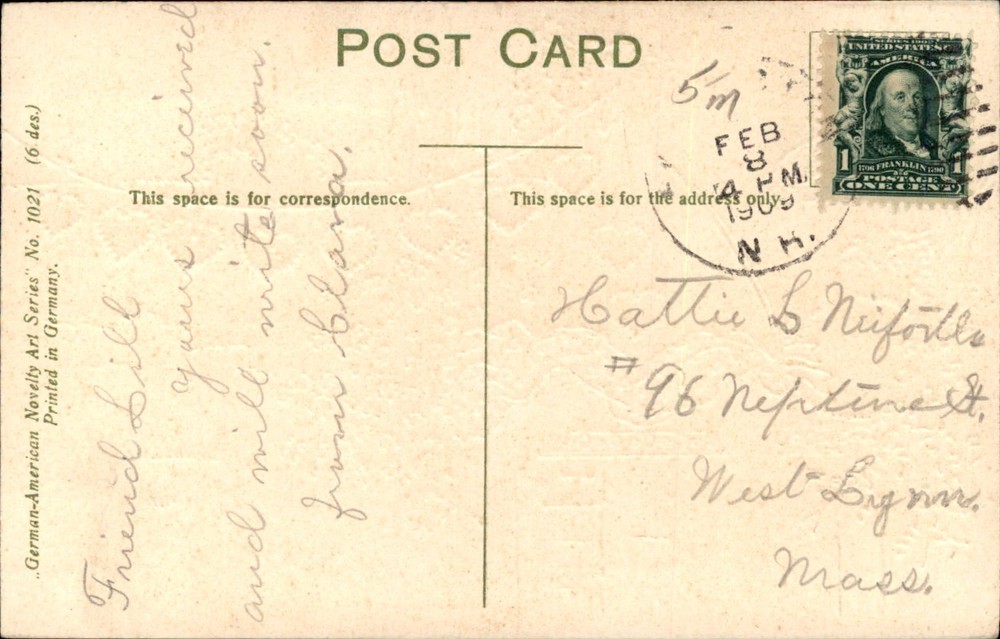 POST CARD
This space is for correspondence.
This space is for the address only.
„German-American Novelty Art Series" No. 1021 (6 des.)
Printed in Germany.
Friend
yours received
and will write soon.
from Clara.
5 m
FEB
8
4 PM
1909
N. H.
SERIES 1902
UNITED STATES OF
AMERICA
1
1706 FRANKLIN 1790
POSTAGE
ONE CENT
Hattie L
# 96 Neptune St.
West Lynn.
Mass.